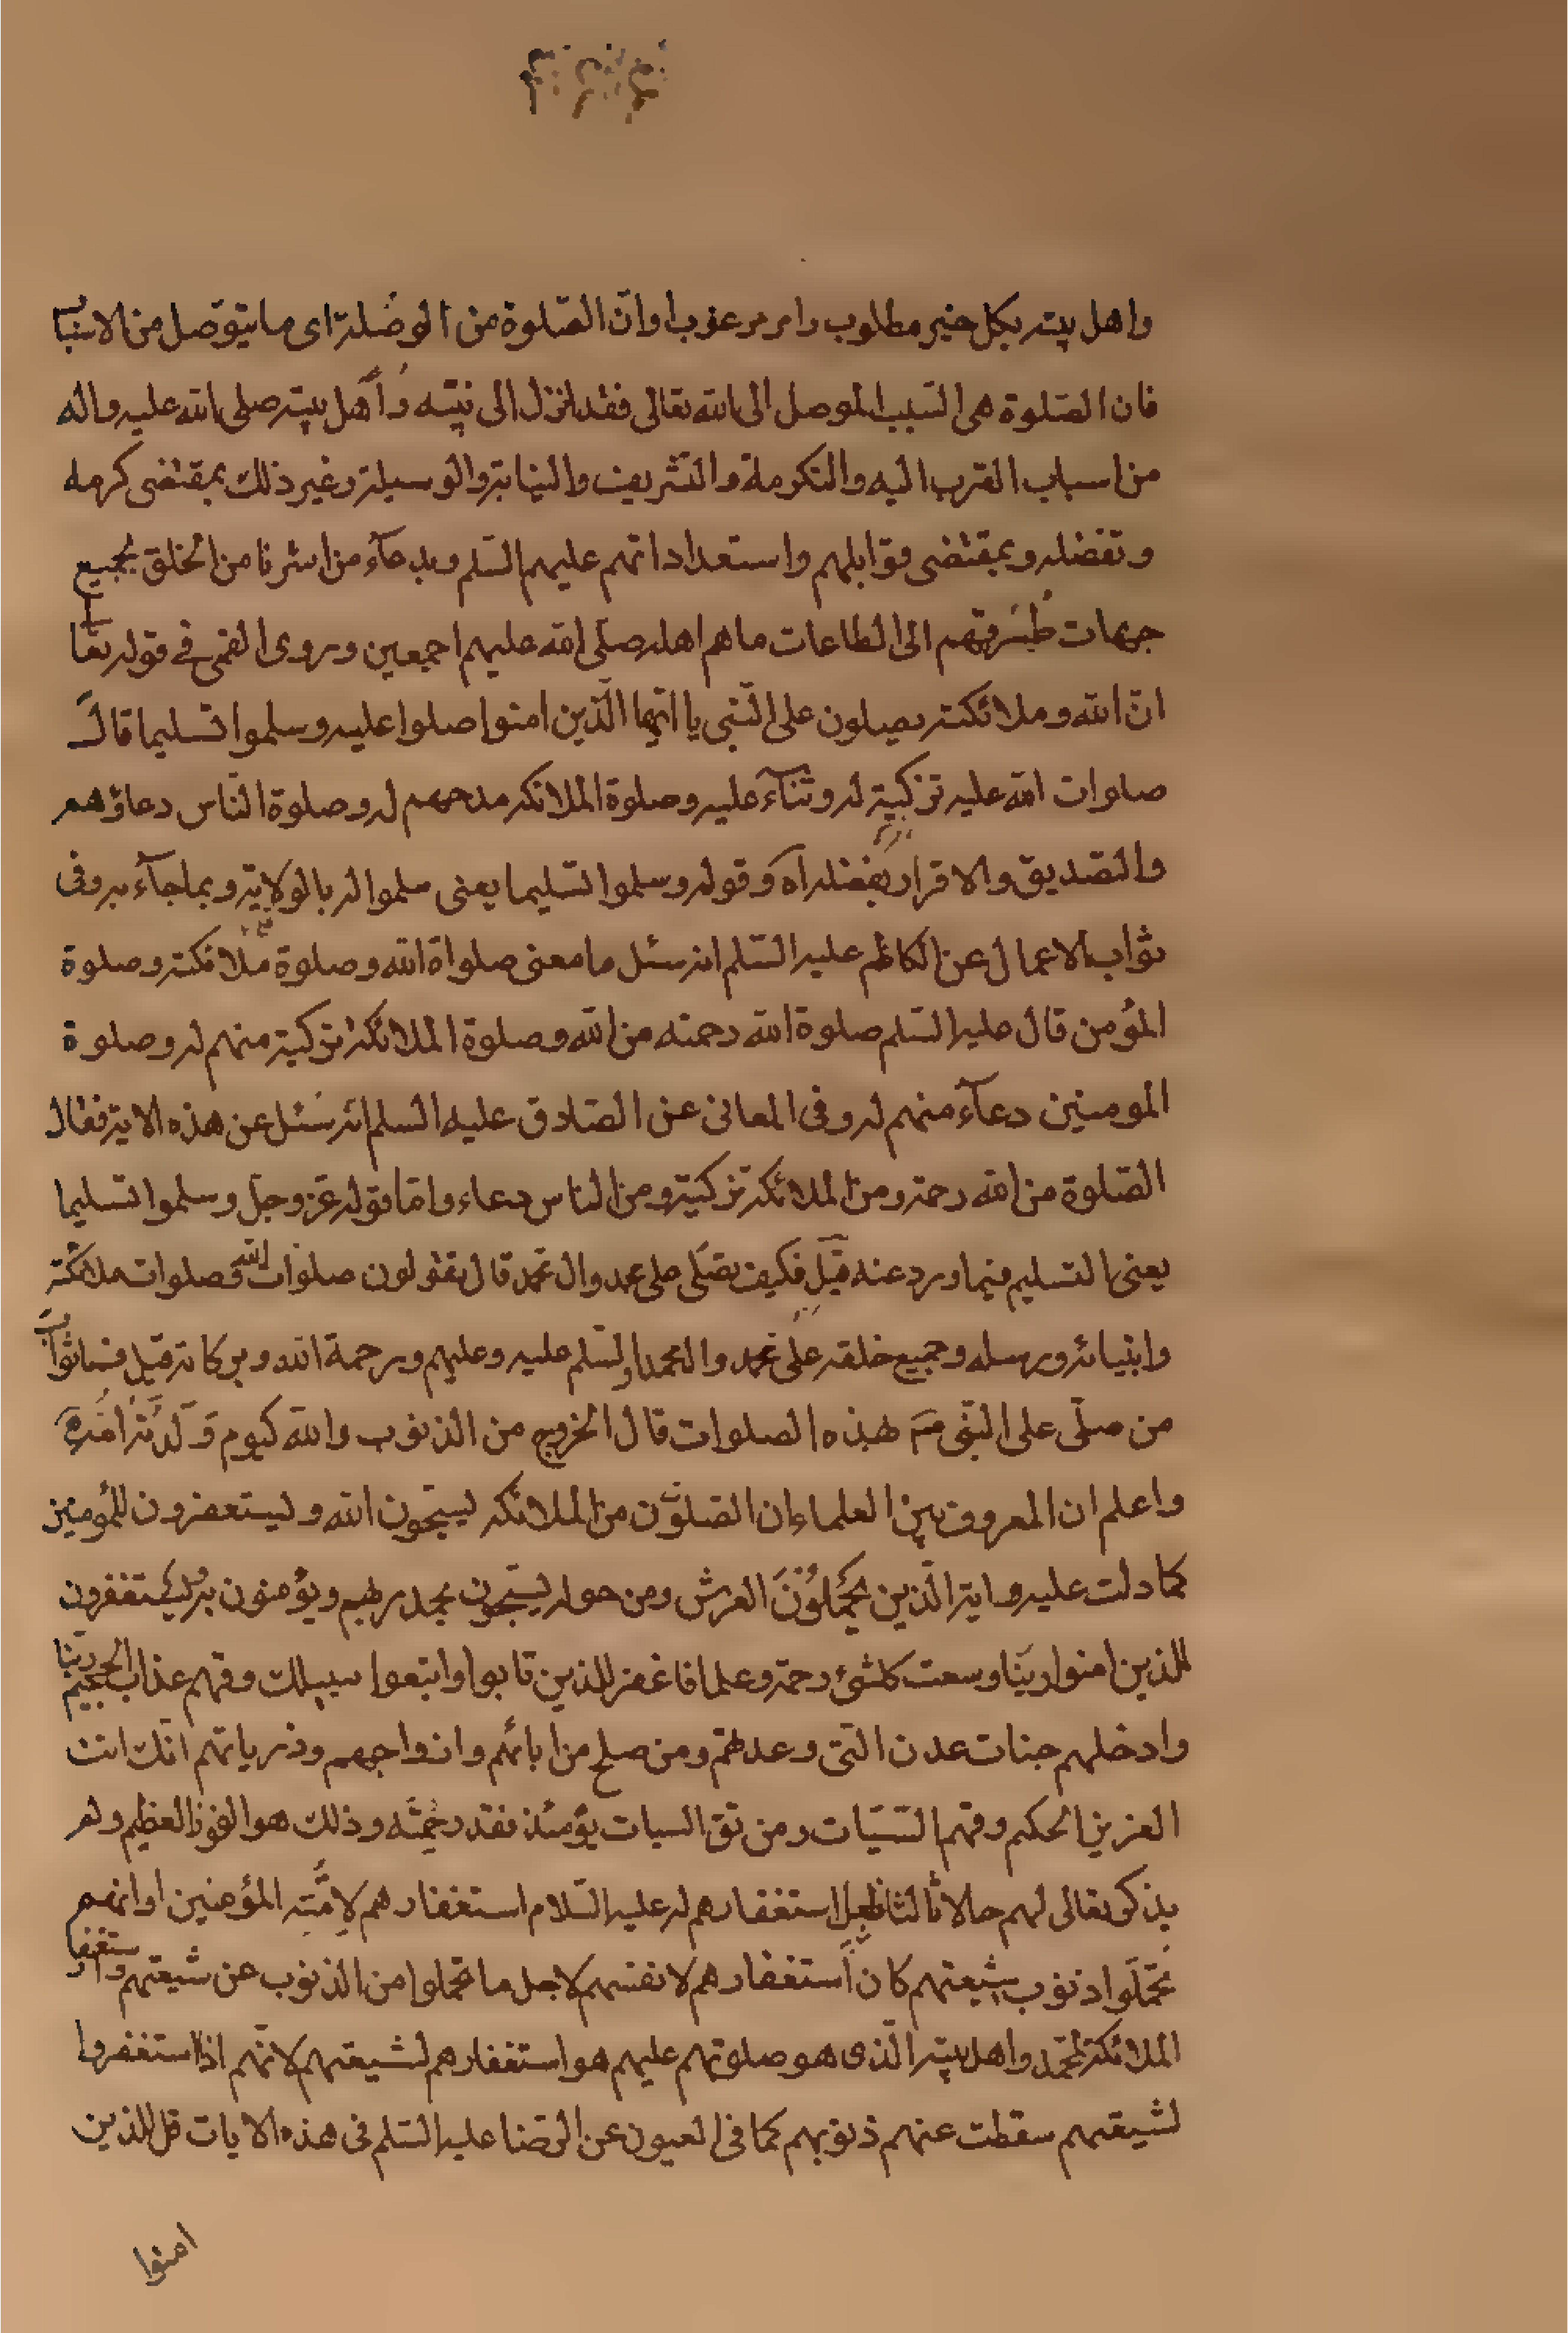 واهل بيته بكل خير مطلوب وامر مرغوب او ان الصّلوة من الوصُلة اى ما يتوصّل من الاسباب
فان الصّلوة هى السّبب الموصل الى الله تعالى فقد انزل الى نبيّه وَاَهل بيته صلى الله عليه واله
من اسباب القرب اليه والتكرمة والتشريف والنيابة والوسيلة وغير ذلك بمقتضى كرمه
وتفضله وبمقتضى قوابلهم واستعداداتهم عليهم السّلم وبدعآء من اشرنا من الخلق بجميع
جهات طُرُقهم الى الطاعات ما هم اهله صلّى الله عليهم اجمعين وروى القمى فى قوله تعا
انّ الله وملائكته يصلون على النّبى يا ايّها الّذين امنوا صلوا عليه وسلموا تسليما قال
صلوات الله عليه تزكية له وثنآء عليه وصلوة الملائكة مدحهم له وصلوة النّاس دعاؤهم
والتصديق والاقرار بفضله اه وقوله وسلموا تسليما يعنى سلموا له بالولاية وبما جآء به وفى
ثواب الاعمال عن الكاظم عليه السّلم انه سئل ما معنى صلواة الله وصلوة ملائكته وصلوة
المؤمن قال عليه السّلم صلوة الله رحمته من الله وصلوة الملائكة تزكية منهم له وصلوة
المومنين دعآء منهم له وفى المعانى عن الصّادق عليه السلم انّه سُئل عن هذه الاية فقال
الصّلوة من الله رحمة ومن الملائكة تزكية ومن الناس دعاء وامّا قوله عزّ وجلّ وسلموا تسليما
يعنى التسليم فيما ورد عنه قيل فكيف نصلّى على محمد وال محمد قال تقولون صلوات الله وصلوات ملائكته
وانبيائه ورسله وجميع خلقه على محمد وال محمد والسّلم عليه وعليهم ورحمة الله وبركاته قيل فما ثواب
من صلّى على النّبى صَ هذه الصلوات قال الخروج من الذنوب والله كيوم وَلَدَتْهُ اُمُّه
واعلم ان المعروف بين العلماء ان الصلوة من الملائكة يسبّحون الله ويستغفرون للمؤمنين
كما دلت عليه اية الّذين يحْمِلُوْنَ العرش ومن حوله يسبّحون بحمد ربهم ويؤمنون به ويستغفرون
للذين امنوا ربّنا وسعت كلشئ رحمة وعلما فاغفر للذين تابوا واتبعوا سبيلك وقهم عذاب الجحيم ربّنا
وادخلهم جنات عدن الّتى وعدتهم ومن صلح من ابائهم وازواجهم وذرياتهم انّك انت
العزيز الحكيم وقهم السّيّات ومن تق السيات يؤمئذ فقد رحِمْتَه وذلك هو الفوز العظيم ولم
يذكر تعالى لهم حالا ثالثا فلعل استغفارهم له عليه السّلام استغفارهم لامّته المؤمنين او انهم
تحمّلوا ذنوب شيعتهم كان استغفارهم لانفسهم لاجل ما تحملوا من الذنوب عن شيعتهم واستغفار
الملائكة لمحمّد واهل بيته الّذى هو صلوتهم عليهم هو استغفارهم لشيعتهم لانّهم اذا استغفروا
لشيعتهم سقطت عنهم ذنوبهم كما فى العيون عن الرّضا عليه السّلم فى هذه الايات قل للذين
امنوا